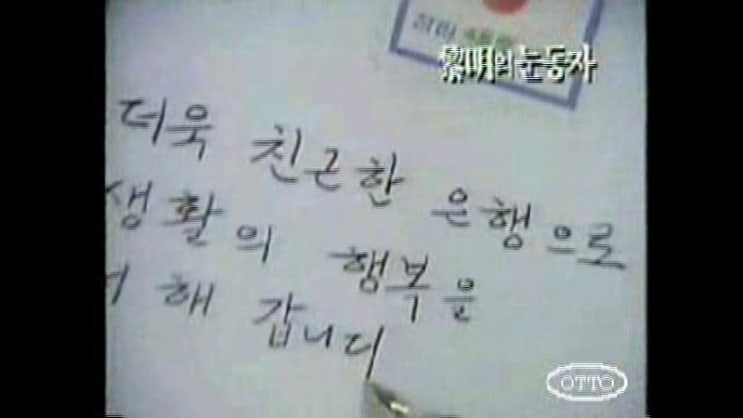 黎明의 눈동자
더욱 친근한 은행으로
생활의 행복을
더해 갑니다
OTTO